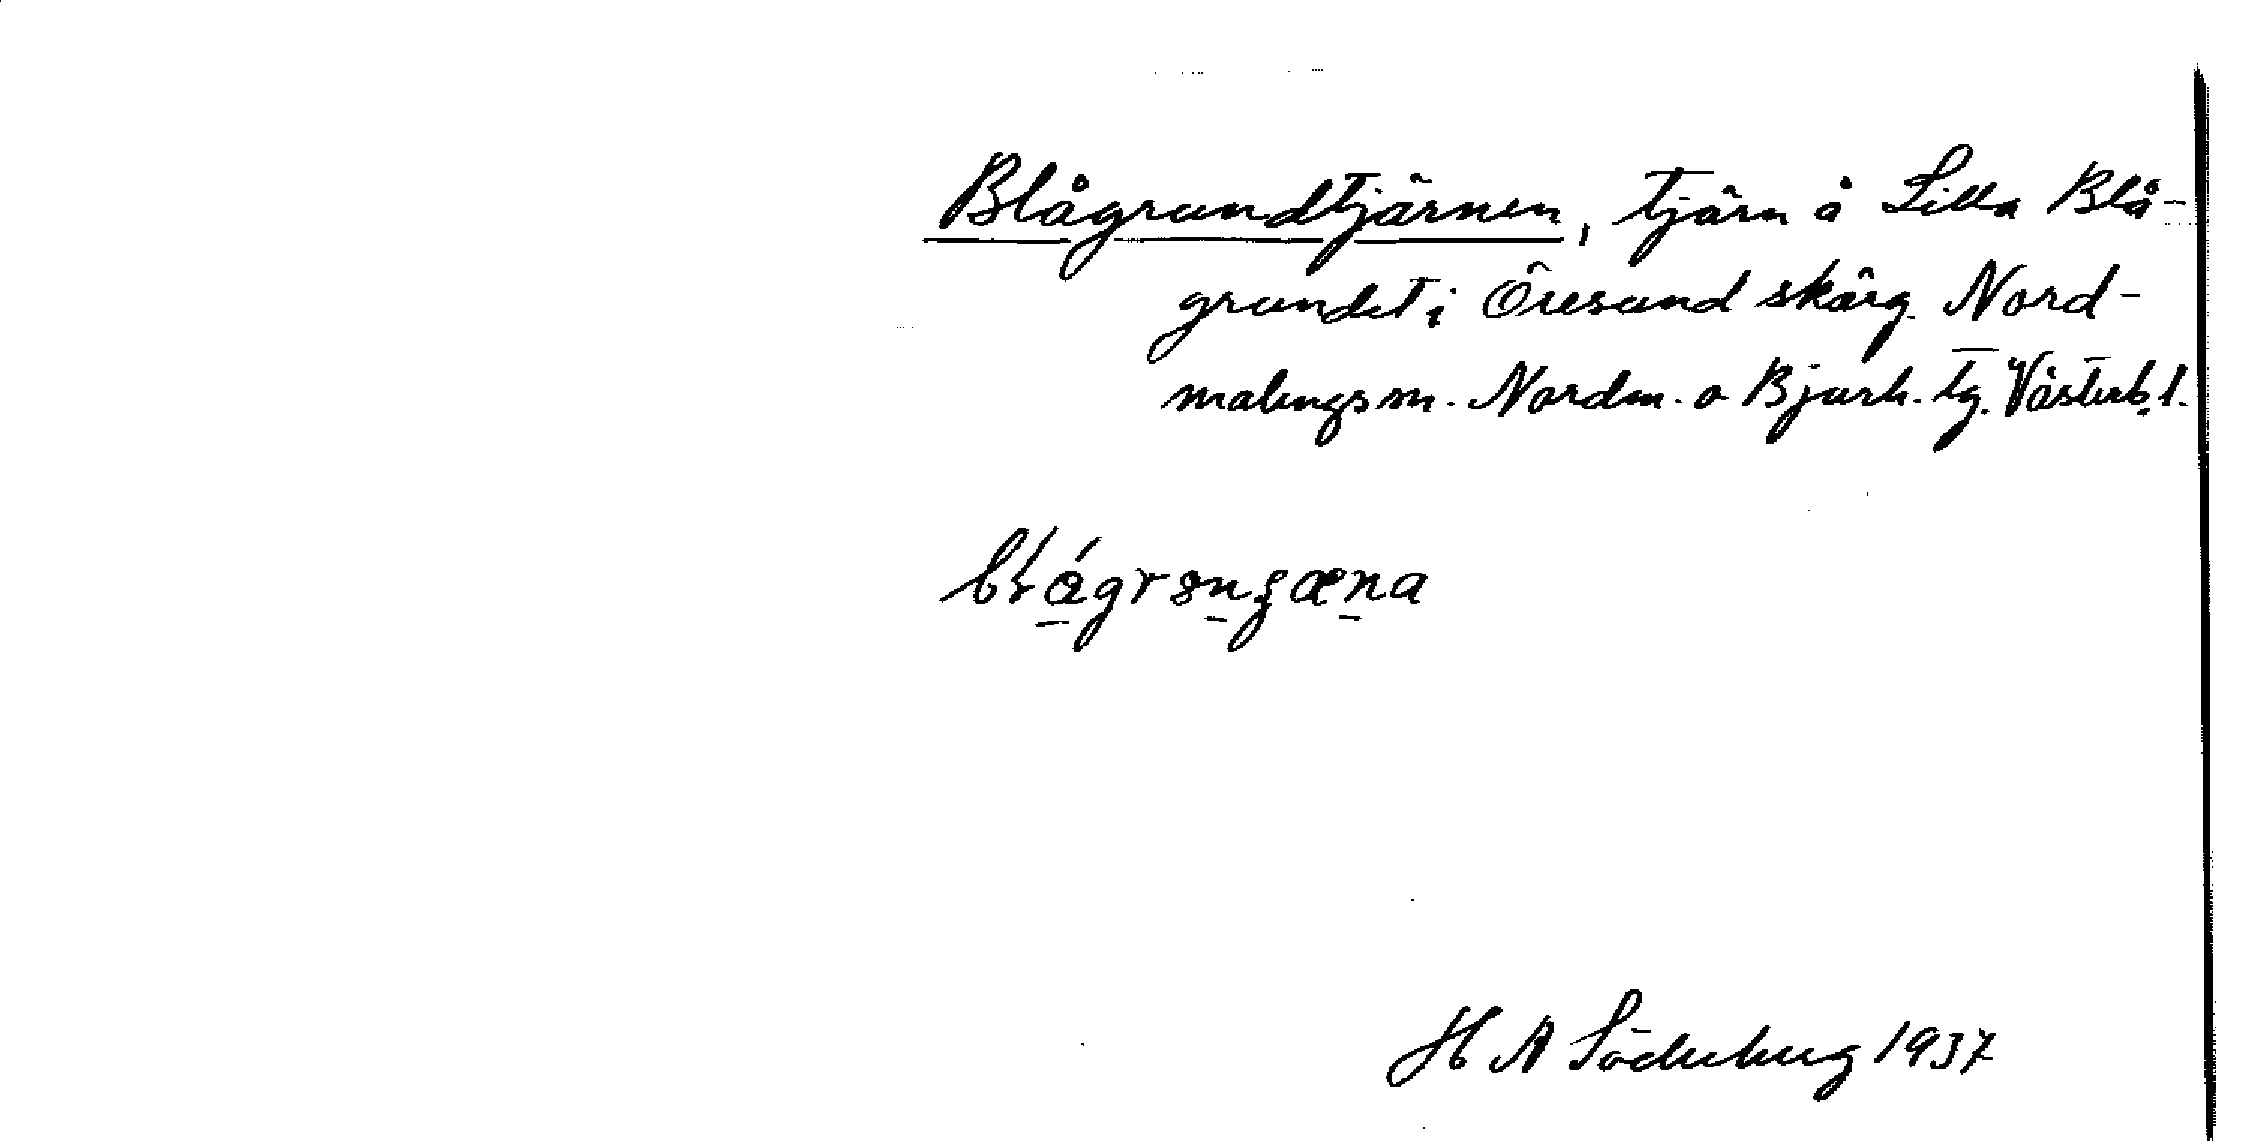 Blågrundtjärnen, tjärn å Lilla Blå-
grundet i Öresund skärg. Nord-
malings sn. Nordm. o Bjurh. tg. Västerb. l.
H A Söderberg 1937